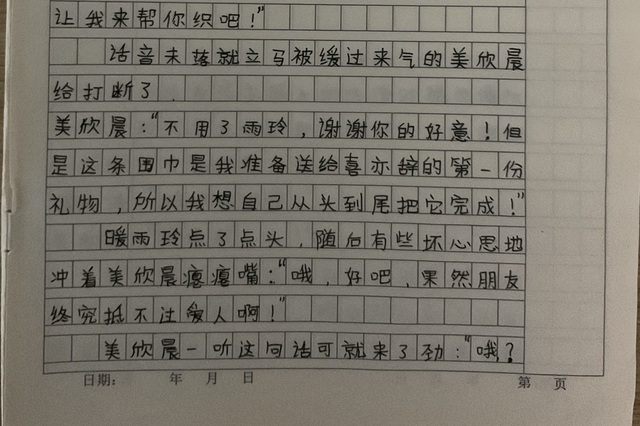 让我来帮你织吧！"
话音未落就立马被缓过来气的美欣晨
给打断了.
美欣晨："不用了雨玲，谢谢你的好意！但
是这条围巾是我准备送给喜亦辞的第一份
礼物，所以我想自己从头到尾把它完成！"
暖雨玲点了点头，随后有些坏心思地
冲着美欣晨瘪瘪嘴："哦，好吧，果然朋友
终究抵不过爱人啊！"
美欣晨一听这句话可就来了劲："哦？
日期： 年 月 日 第 页